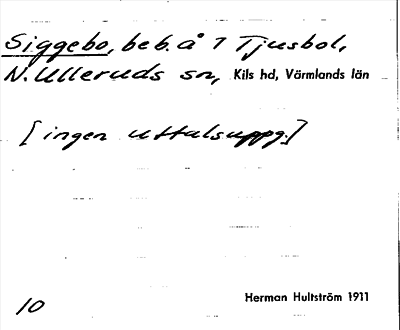 Siggebo, beb. å 1 Tjusbol,
N. Ulleruds sn, Kils hd, Värmlands län
[ingen uttalsuppg.]
Herman Hultström 1911
10